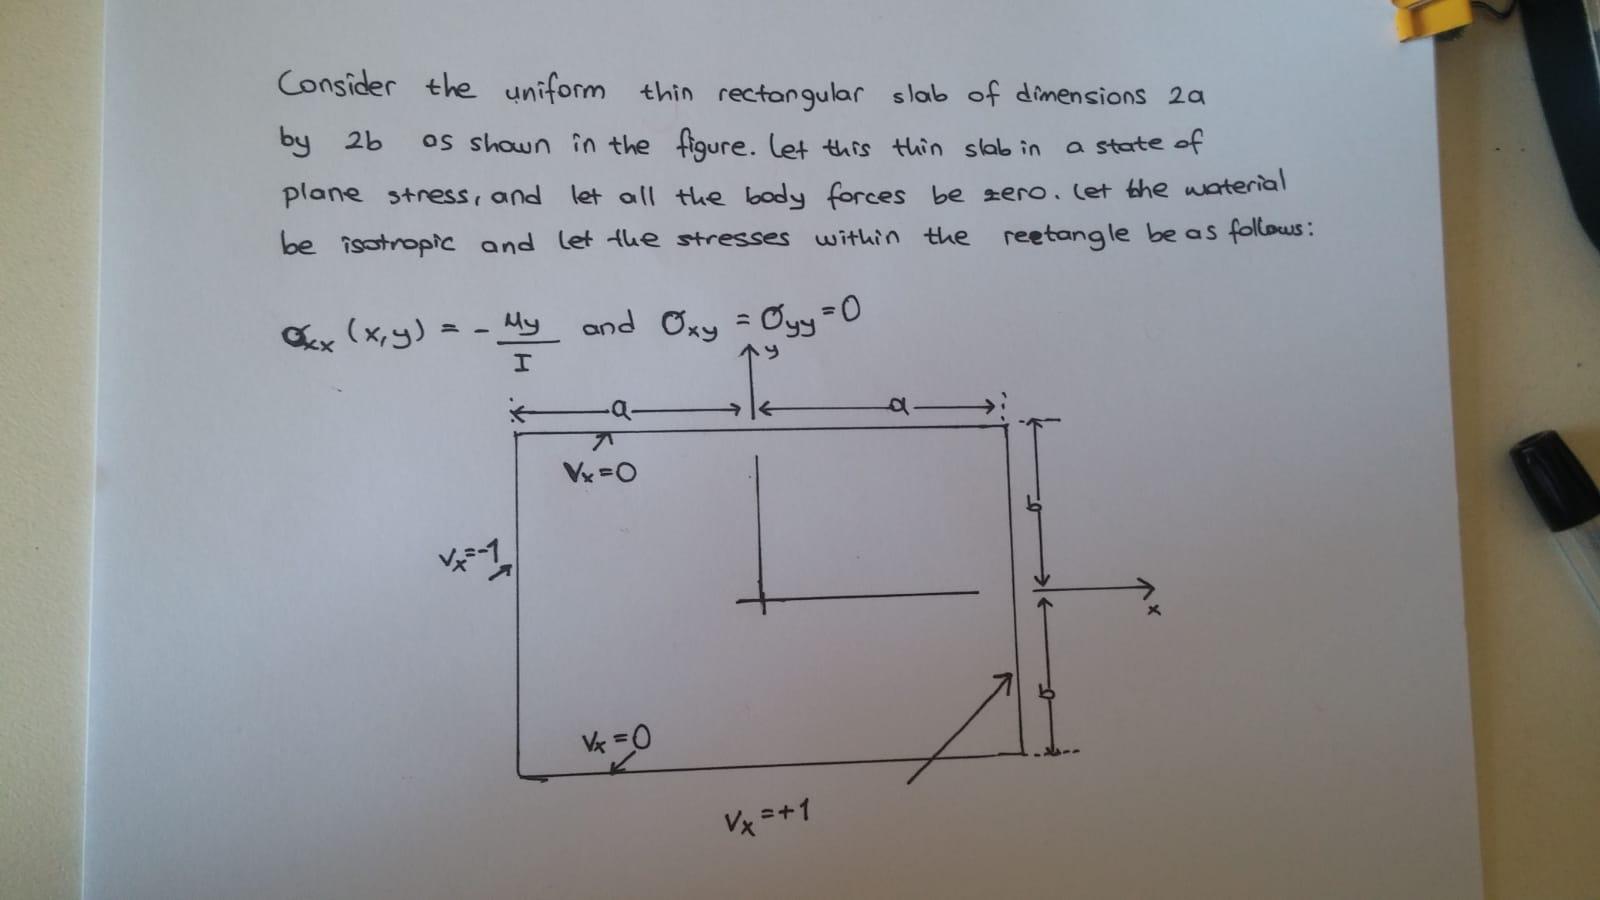 Consider the uniform thin rectangular slab of dimensions 2a
by 2b as shown in the figure. Let this thin slab in a state of
plane stress, and let all the body forces be zero. Let the material
be isotropic and let the stresses within the rectangle be as follows:
σxx (x,y) = - My/I and σxy = σyy = 0
y
a a
Vx=0
b
Vx=-1
x
b
Vx=0
Vx=+1